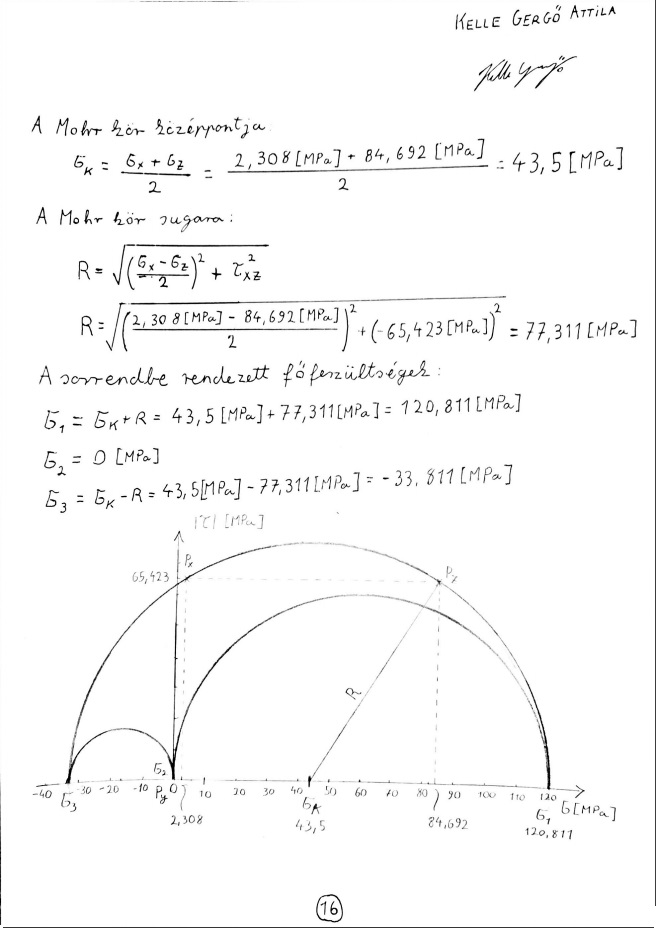 KELLE GERGŐ ATTILA
Kelle Gergő
A Mohr kör középpontja:
σ_K = (σ_x + σ_z)/2 = (2,308 [MPa] + 84,692 [MPa])/2 = 43,5 [MPa]
A Mohr kör sugara:
R = √(((σ_x - σ_z)/2)² + τ_xz²)
R = √(((2,308 [MPa] - 84,692 [MPa])/2)² + (-65,423 [MPa])²) = 77,311 [MPa]
A sorrendbe rendezett főfeszültségek:
σ_1 = σ_K + R = 43,5 [MPa] + 77,311 [MPa] = 120,811 [MPa]
σ_2 = 0 [MPa]
σ_3 = σ_K - R = 43,5 [MPa] - 77,311 [MPa] = -33,811 [MPa]
|τ| [MPa]
65,423 P_x P_x
R
σ_2
-40 -30 -20 -10 0 10 20 30 40 60 70 80 90 100 110 120 σ [MPa]
σ_3 P_y σ_K σ_1
2,308 43,5 84,692 120,811
16